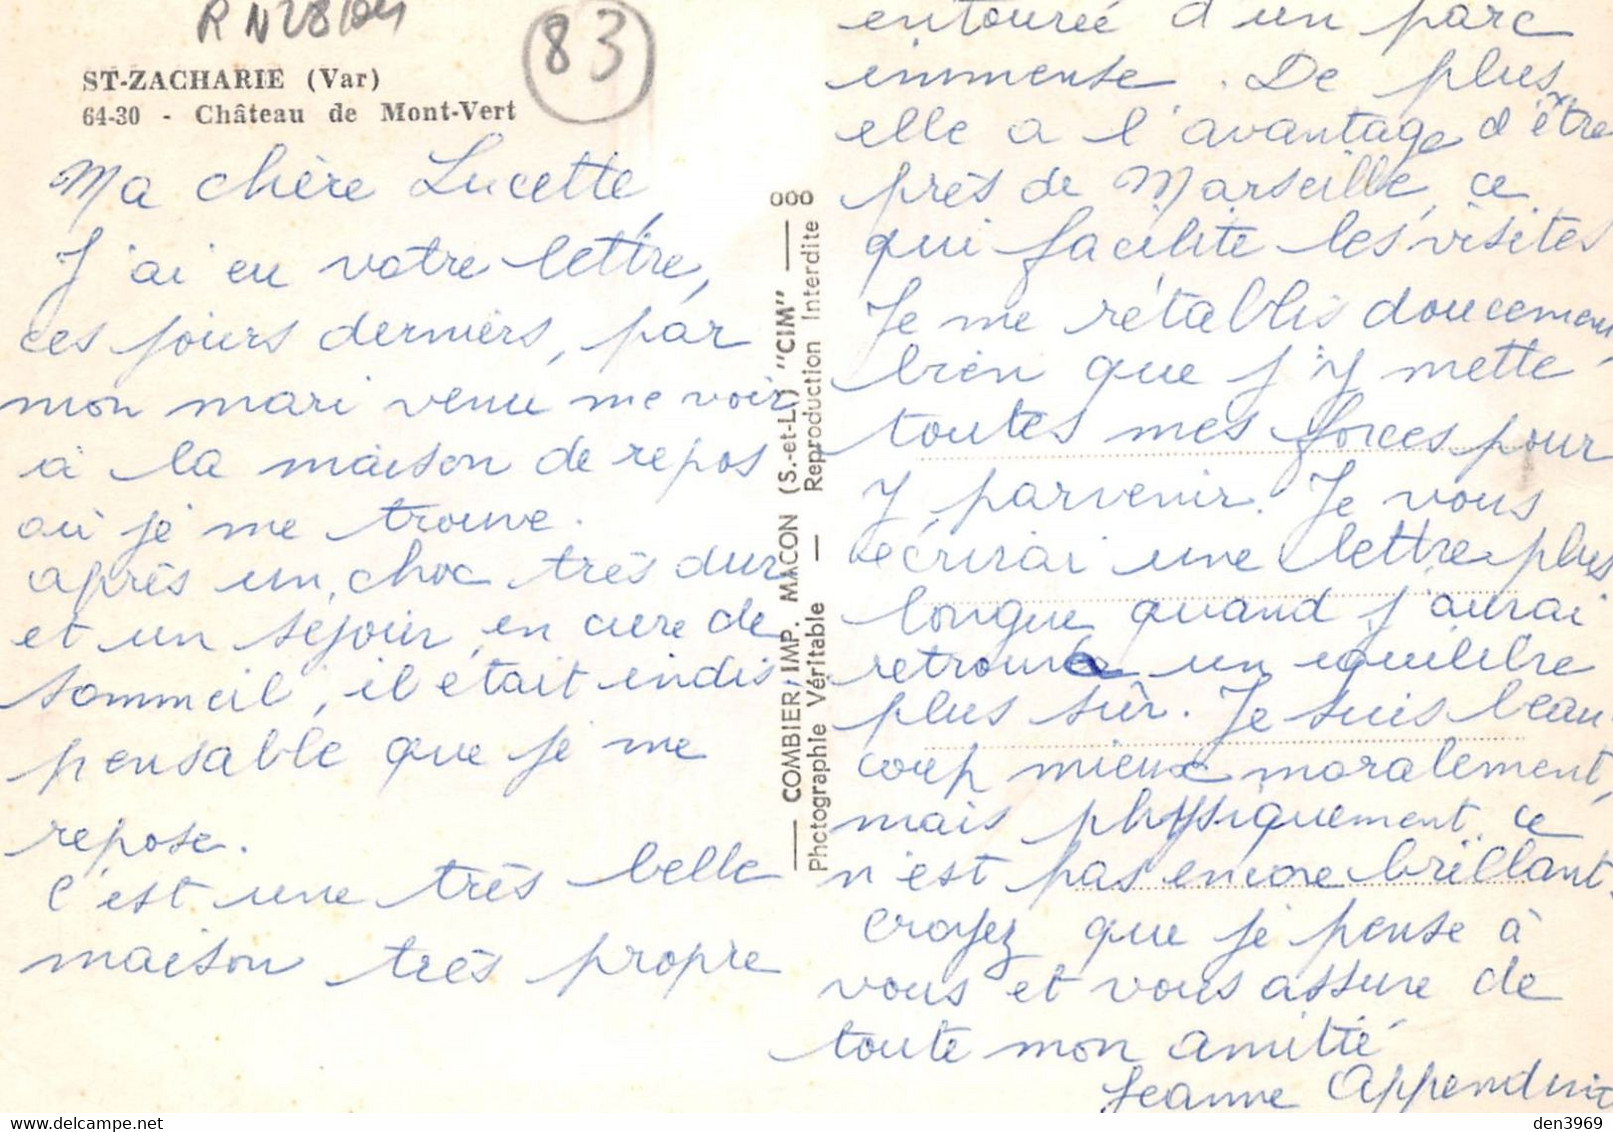 RN28104
83
ST-ZACHARIE (Var)
64-30 - Château de Mont-Vert
Ma chère Lucette,
J'ai eu votre lettre,
ces jours derniers, par
mon mari venu me voir
à la maison de repos
où je me trouve.
après un choc très dur
et un séjour en cure de
sommeil, il était indis
pensable que je me
repose.
C'est une très belle
maison très propre
COMBIER IMP. MACON (S.-et-L.) "CIM"
Photographie Véritable — Reproduction Interdite
entourée d'un parc
immense. De plus
elle a l'avantage d'être
près de Marseille, ce
qui facilite les visites
Je me rétablis doucement,
bien que j'y mette
toutes mes forces pour
y parvenir. Je vous
écrirai une lettre plus
longue quand j'aurai
retrouvé un équilibre
plus sûr. Je suis beau
coup mieux moralement,
mais physiquement ce
n'est pas encore brillant.
Croyez que je pense à
vous et vous assure de
toute mon amitié
Jeanne
den3969